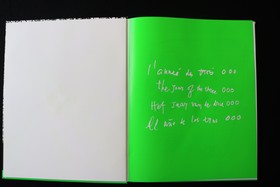 l'année des trois 000
the Year of the three 000
Het Jaar van de drie 000
El año de los tres 000